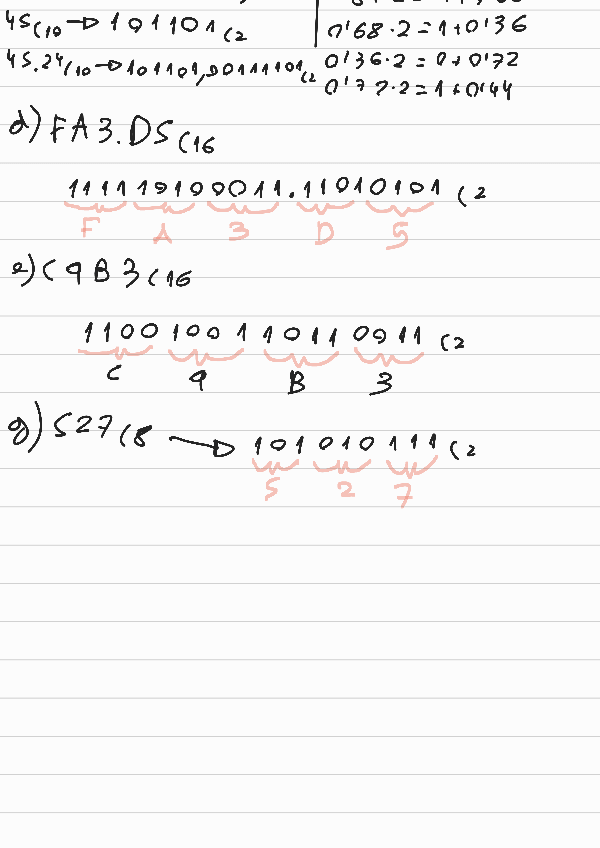 45(10 → 101101(2
0'68·2=1+0'36
45.24(10 → 101101,00111101(2
0'36·2=0+0'72
0'72·2=1+0'44
d) FA3.D5(16
1111 1010 0011.1101 0101 (2
F A 3 D 5
e) C9B3(16
1100 1001 1011 0011 (2
C 9 B 3
g) 527(8 → 101 010 111 (2
5 2 7